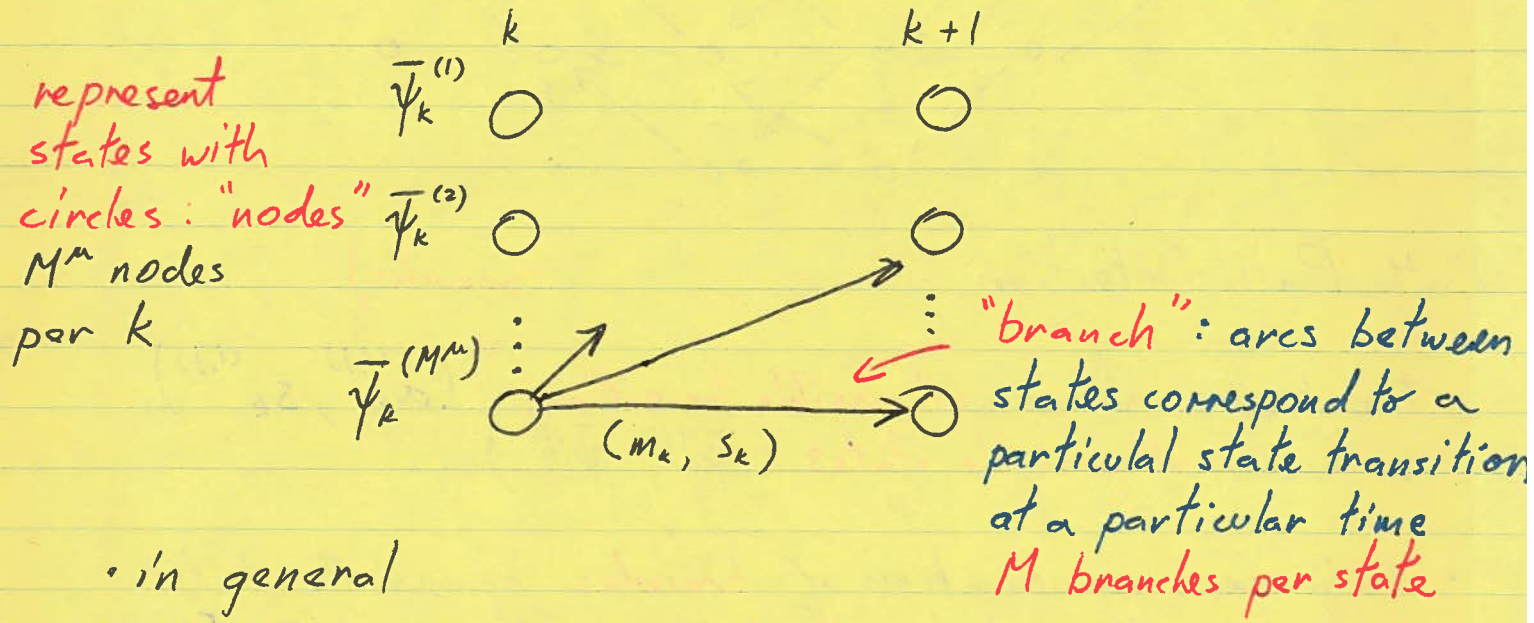 k
k + 1
represent
states with
circles: "nodes"
M^μ nodes
per k
ψ̄_k^(1)
ψ̄_k^(2)
⋮
ψ̄_k^(M^μ)
(m_k, s_k)
⋮
"branch": arcs between
states correspond to a
particulal state transition
at a particular time
M branches per state
• in general